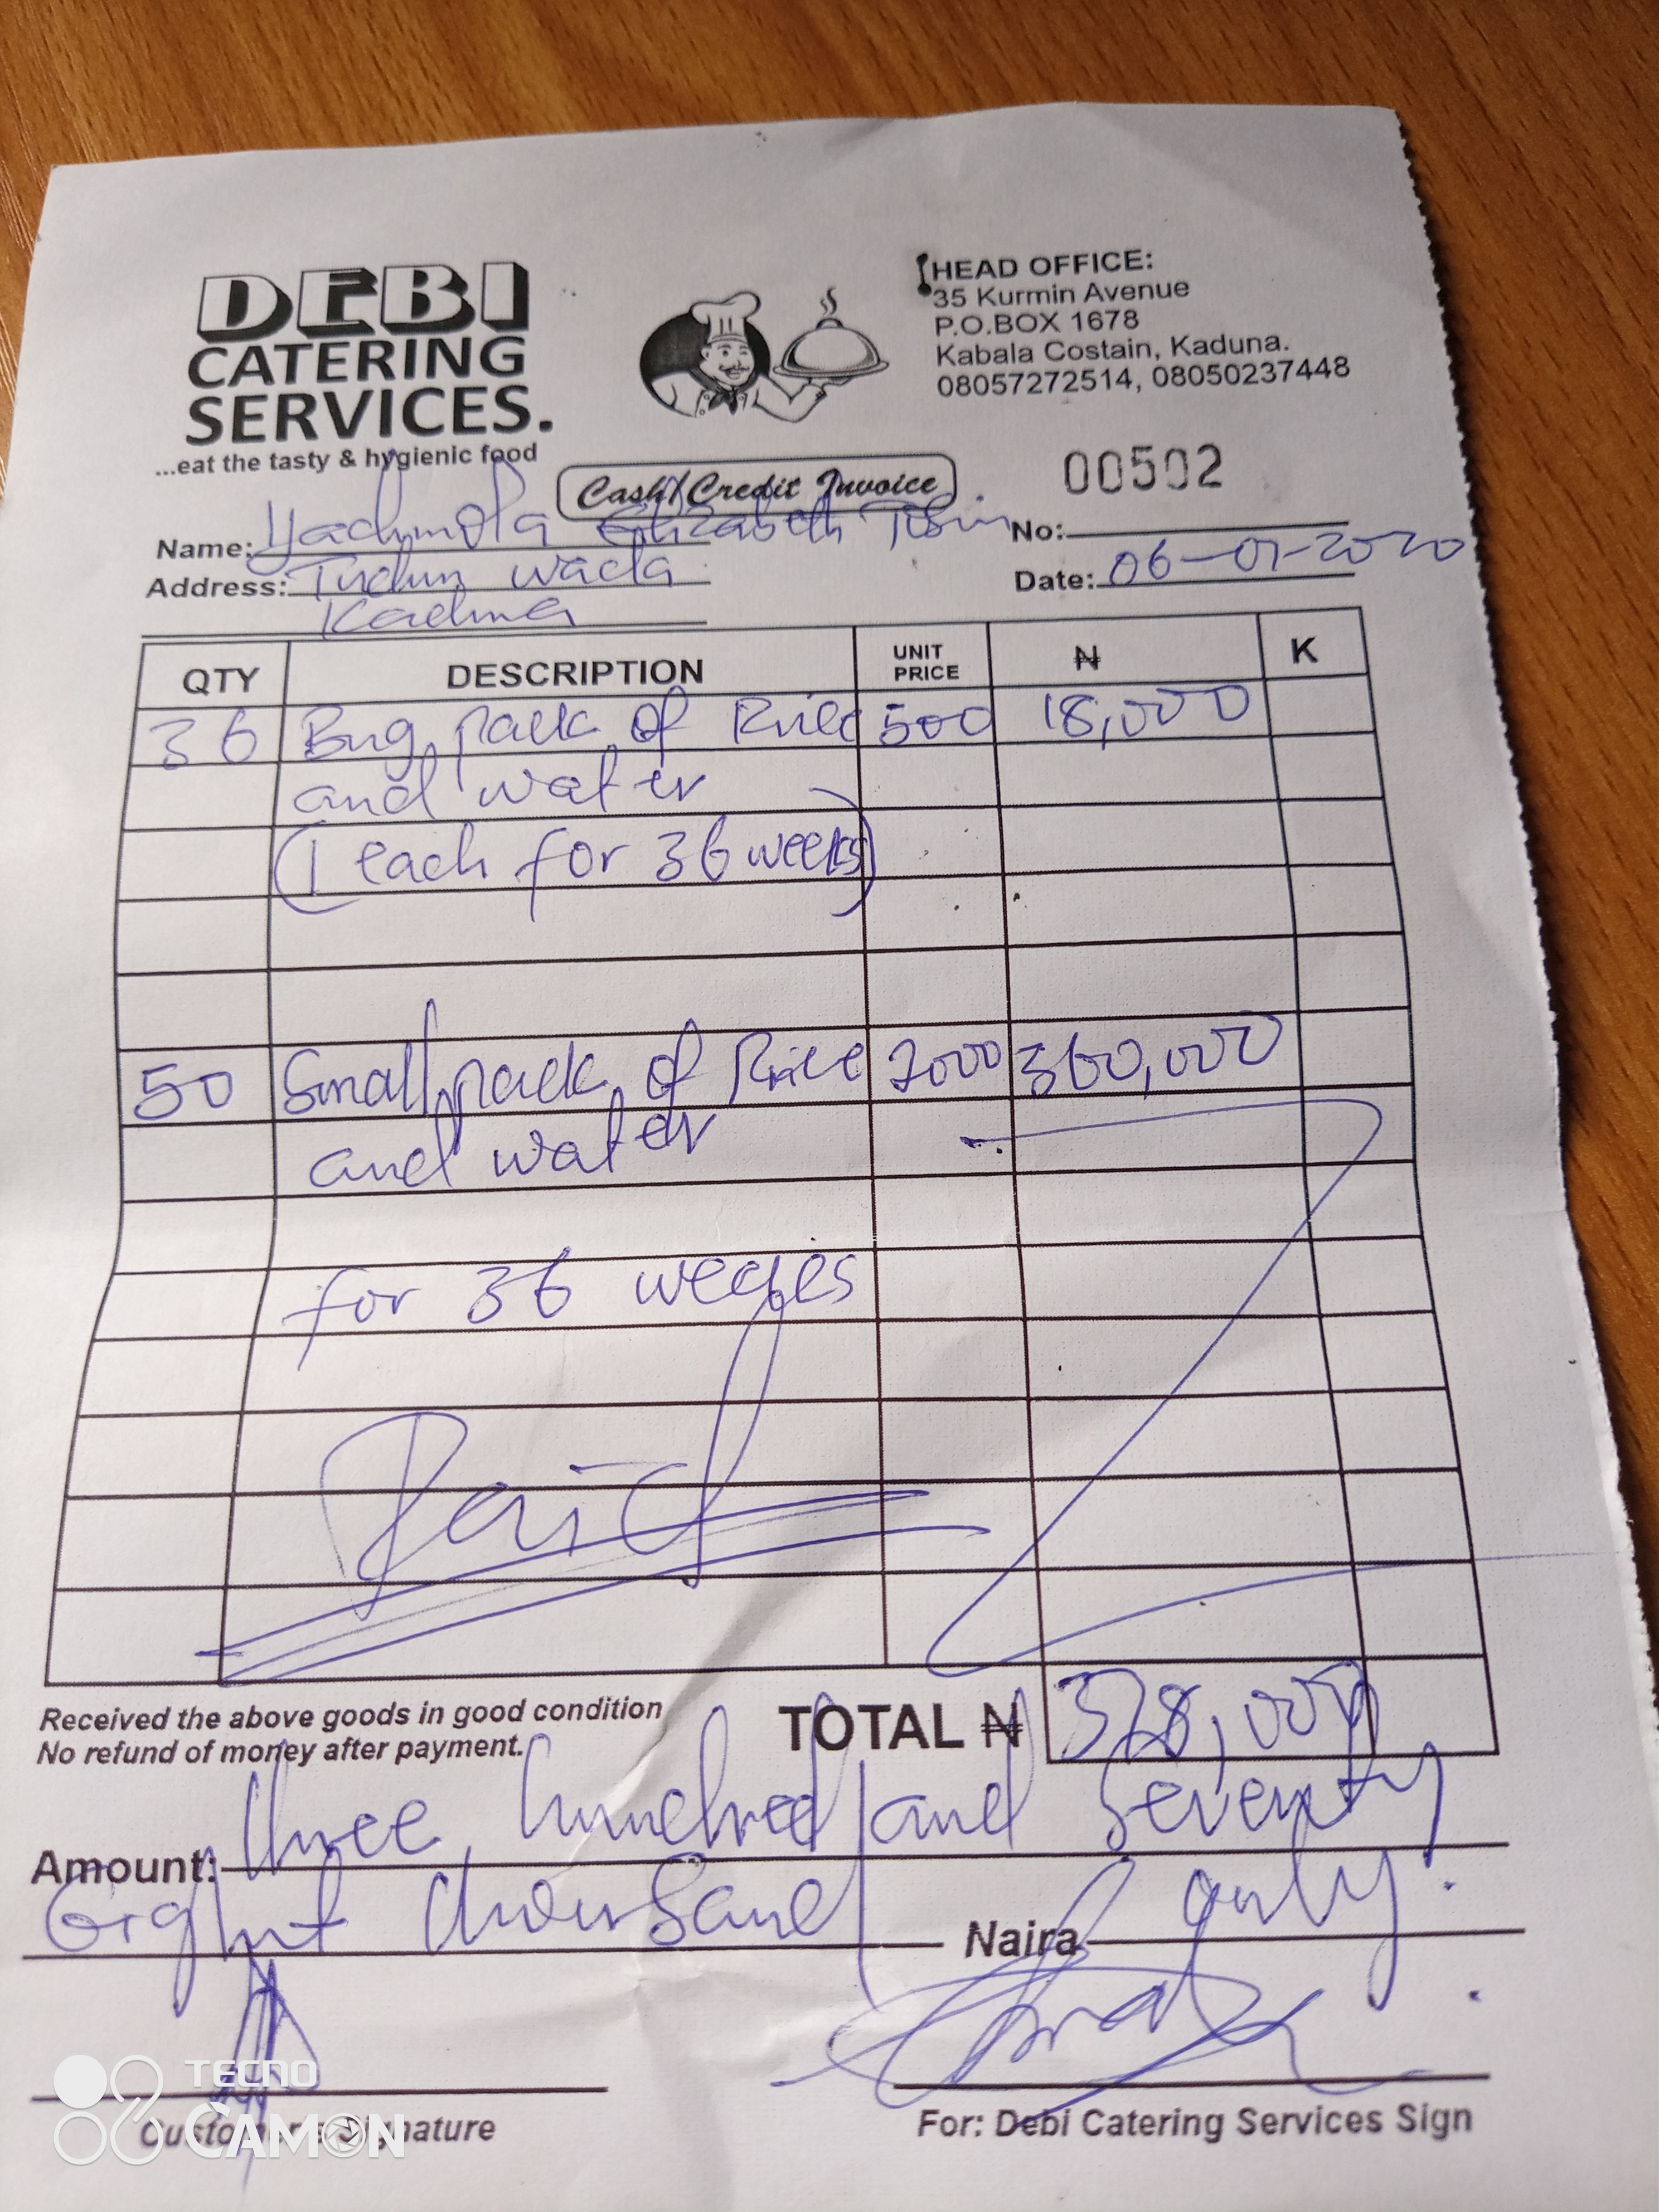 DEBI
CATERING
SERVICES.
...eat the tasty & hygienic food
HEAD OFFICE:
35 Kurmin Avenue
P.O.BOX 1678
Kabala Costain, Kaduna.
08057272514, 08050237448
Cash/Credit Invoice
00502
Name: Elizabeth
No:
Address: Tudun wada
Kaduna
Date: 06-01-2020
QTY DESCRIPTION UNIT PRICE ₦ K
36 Big pack of Rice 500 18,000
and water
(1 each for 36 weeks)
50 Small pack of Rice 360,000
and water
for 36 weeks
Paid
Received the above goods in good condition
No refund of money after payment.
TOTAL ₦ 378,000
Amount: three hundred and seventy
Eight thousand Naira only.
Customer's Signature
For: Debi Catering Services Sign
TECNO
CAMON